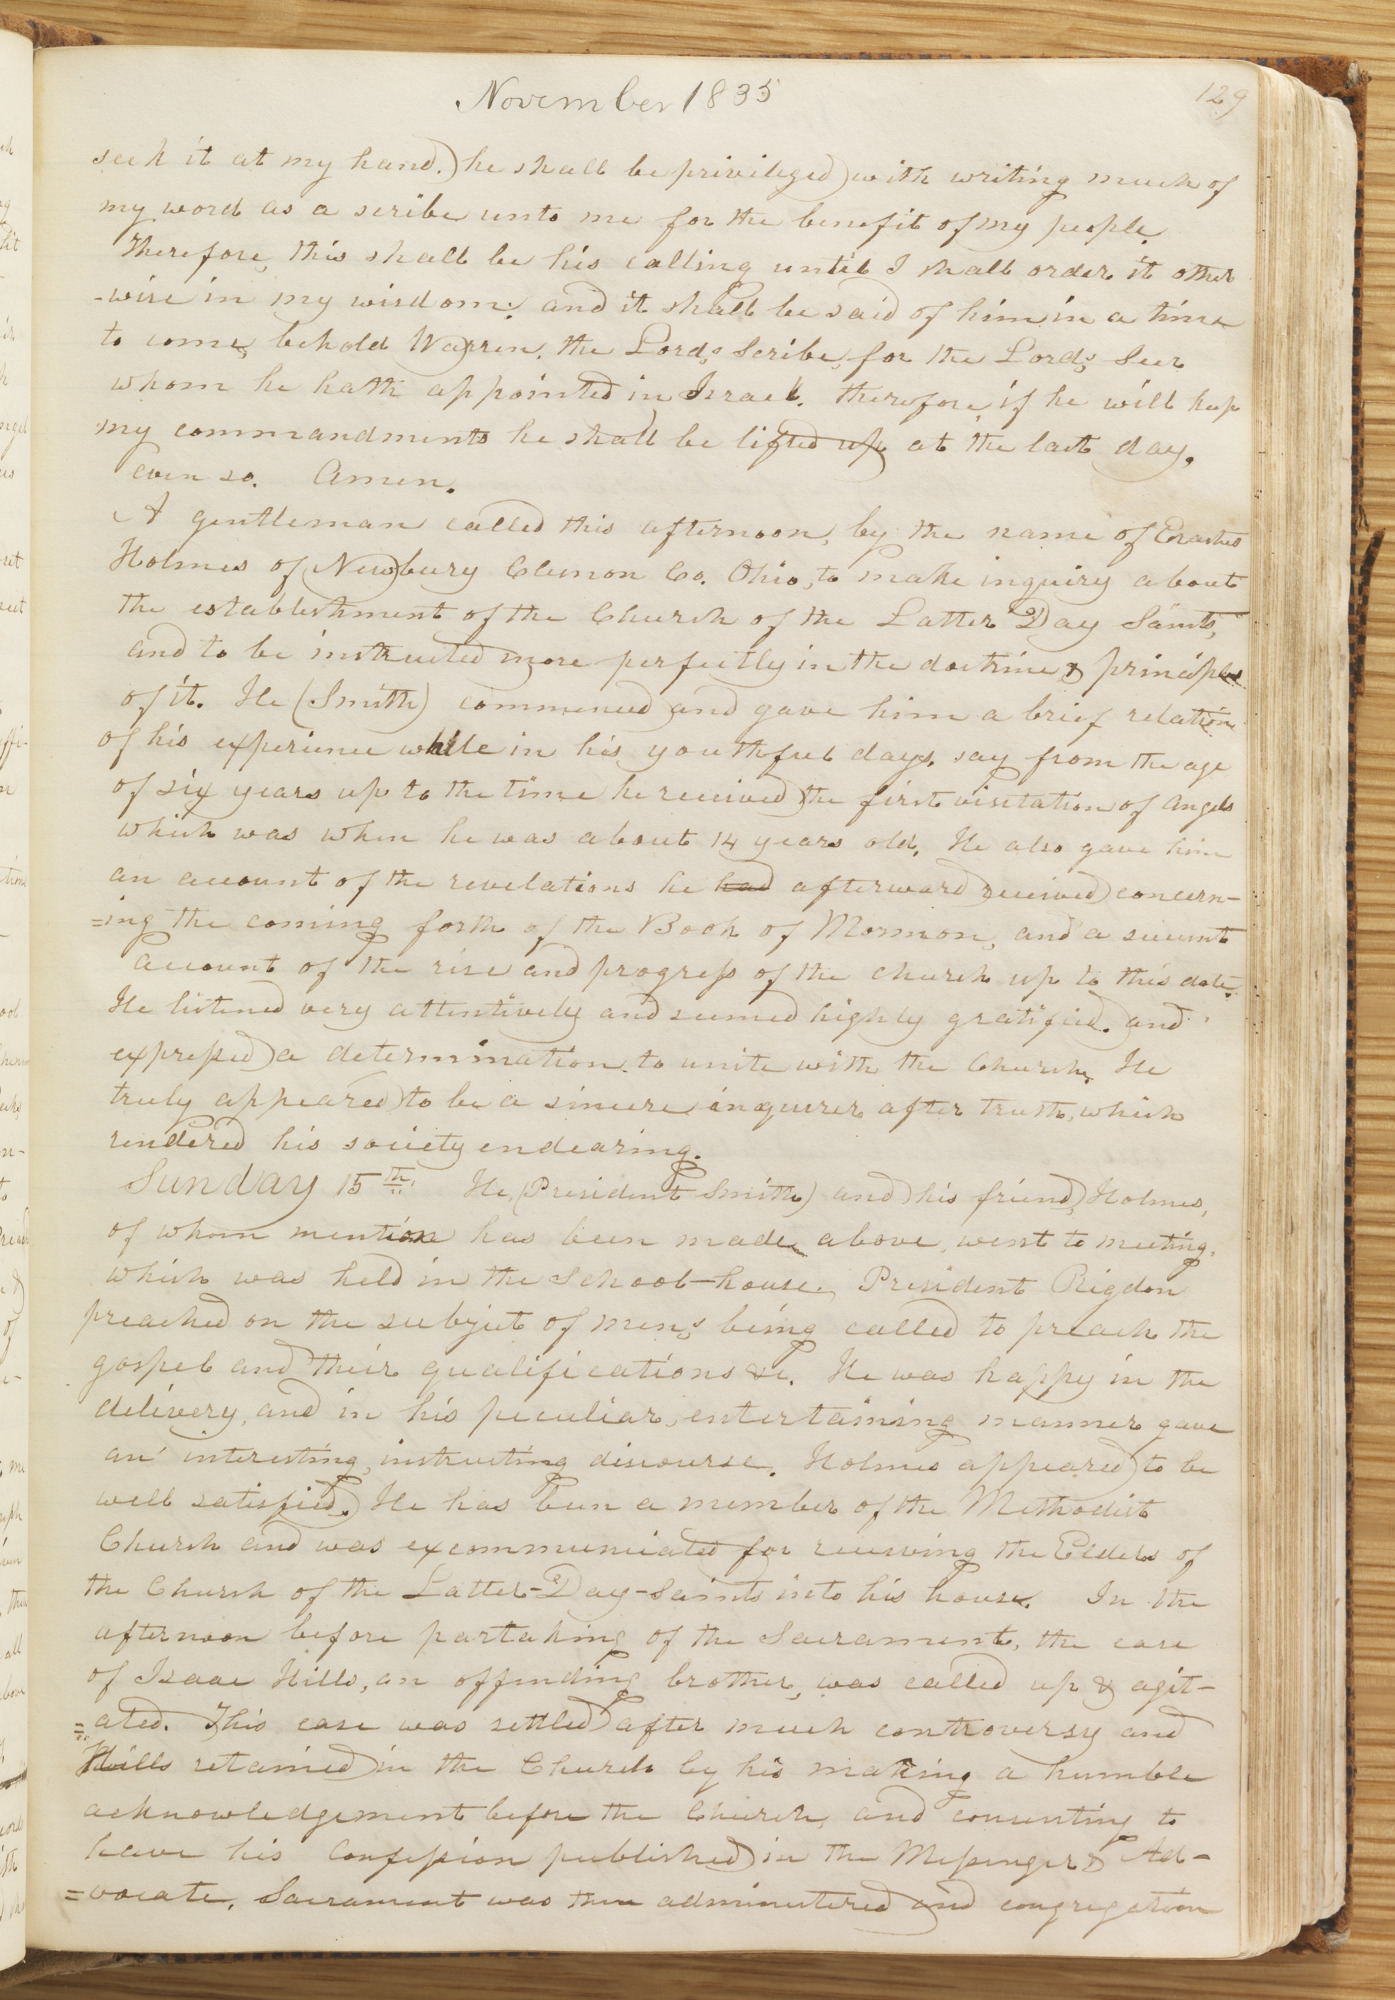 November 1835
129
seek it at my hand. he shall be privileged with writing much of
my word as a scribe unto me for the benefit of my people.
Therefore, this shall be his calling until I shall order it other
-wise in my wisdom; and it shall be said of him in a time
to come, behold Warren, the Lord's Scribe, for the Lord's Seer
whom he hath appointed in Israel. therefore, if he will keep
my commandments he shall be lifted up at the last day.
even so. Amen.
A gentleman called this afternoon, by the name of Erastus
Holmes of Newbury Clemon Co. Ohio, to make inquiry about
the establishment of the Church of the Latter Day Saints,
and to be instructed more perfectly in the doctrine & principles
of it. He (Smith) commenced and gave him a brief relation
of his experience while in his youthful days, say from the age
of six years up to the time he received the first visitation of Angels
which was when he was about 14 years old. He also gave him
an account of the revelations he had afterward received concern-
=ing the coming forth of the Book of Mormon, and a succint
account of the rise and progress of the church up to this date.
He listened very attentively and seemed highly gratified. and
expressed a determination to unite with the Church. He
truly appeared to be a sincere inquirer after truth, which
rendered his society endearing.
Sunday 15th. He, (President Smith) and his friend, Holmes,
of whom mention has been made above, went to meeting,
which was held in the School-house. President Rigdon
preached on the subject of men's being called to preach the
gospel and their qualifications &c. He was happy in the
delivery, and in his peculiar, entertaining manner gave
an interesting, instructing discourse. Holmes appeared to be
well satisfied. He has been a member of the Methodist
Church and was excommunicated for receiving the Elders of
the Church of the Latter-Day-Saints into his house. In the
afternoon before partaking of the Sacrament, the case
of Isaac Hills, an offending brother, was called up & agit-
=ated. This case was settled after much controversy and
Hills retained in the Church by his making a humble
acknowledgement before the Church, and concenting to
have his Confession published in the Messenger & Ad-
=vocate. Sacrament was then administered and congregation